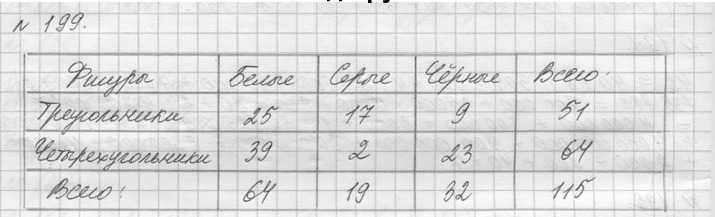 № 199.
Фигуры Белые Серые Чёрные Всего:
Треугольники 25 17 9 51
Четырехугольники 39 2 23 64
Всего: 64 19 32 115